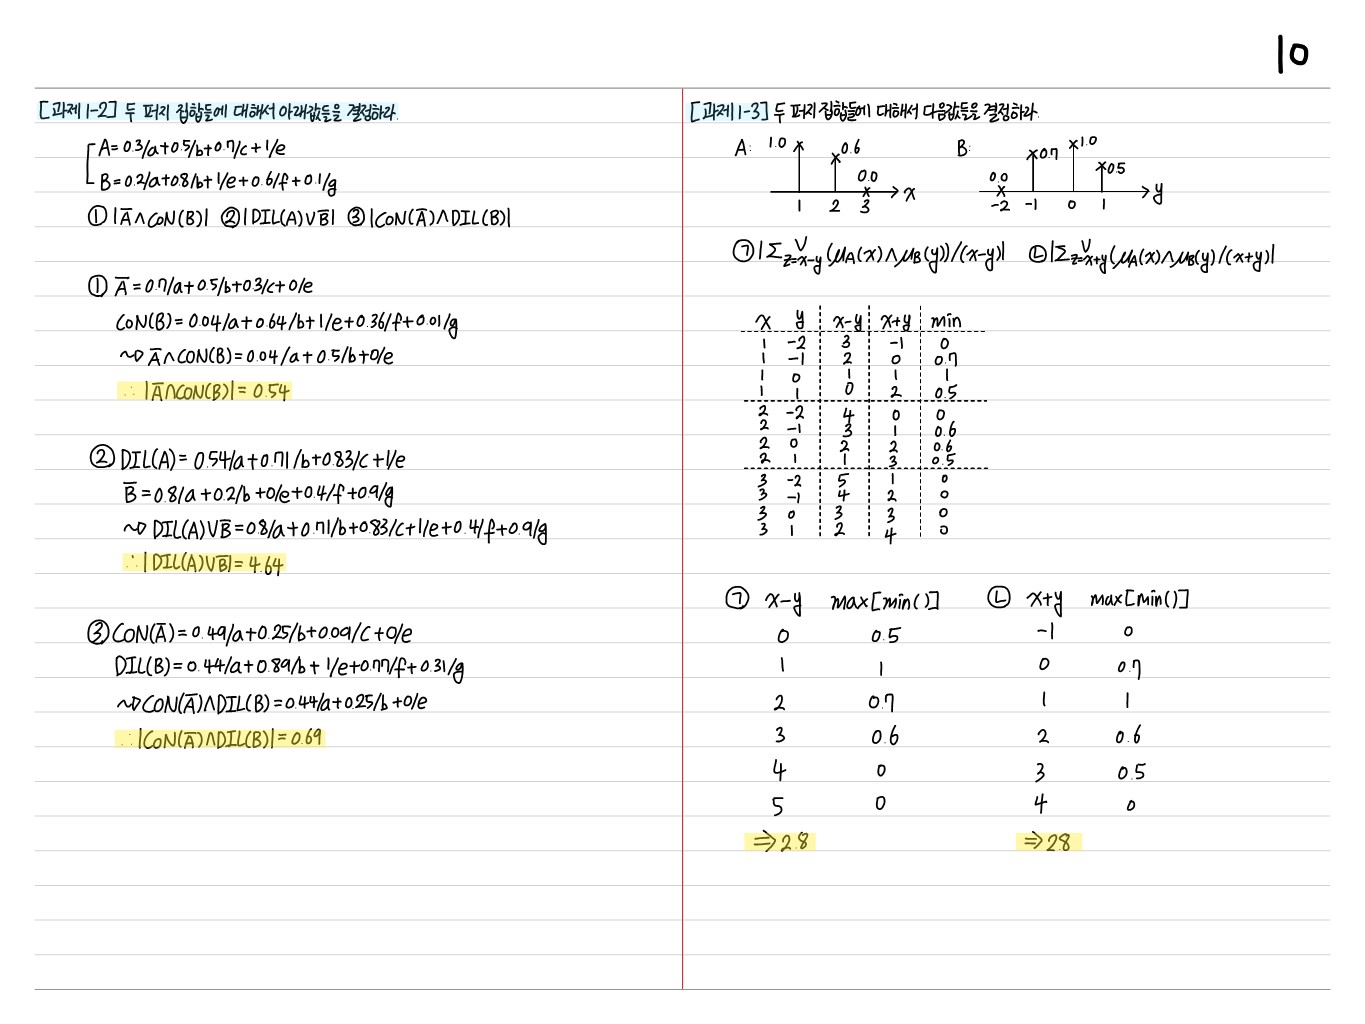 10
[과제 1-2] 두 퍼지 집합들에 대해서 아래값들을 결정하라.
A = 0.3/a + 0.5/b + 0.7/c + 1/e
B = 0.2/a + 0.8/b + 1/e + 0.6/f + 0.1/g
① |A̅ ∧ CON(B)| ② |DIL(A) ∨ B̅| ③ |CON(A̅) ∧ DIL(B)|
① A̅ = 0.7/a + 0.5/b + 0.3/c + 0/e
CON(B) = 0.04/a + 0.64/b + 1/e + 0.36/f + 0.01/g
⤳ A̅ ∧ CON(B) = 0.04/a + 0.5/b + 0/e
∴ |A̅ ∩ CON(B)| = 0.54
② DIL(A) = 0.54/a + 0.71/b + 0.83/c + 1/e
B̅ = 0.8/a + 0.2/b + 0/e + 0.4/f + 0.9/g
⤳ DIL(A) ∨ B̅ = 0.8/a + 0.71/b + 0.83/c + 1/e + 0.4/f + 0.9/g
∴ |DIL(A) ∨ B̅| = 4.64
③ CON(A̅) = 0.49/a + 0.25/b + 0.09/c + 0/e
DIL(B) = 0.44/a + 0.89/b + 1/e + 0.77/f + 0.31/g
⤳ CON(A̅) ∧ DIL(B) = 0.44/a + 0.25/b + 0/e
∴ |CON(A̅) ∧ DIL(B)| = 0.69
[과제 1-3] 두 퍼지 집합들에 대해서 다음값들을 결정하라.
A: 1.0 0.6 0.0 x
1 2 3
B: 0.0 0.7 1.0 0.5 y
-2 -1 0 1
㉠ |Σ ∨ z=x-y (μA(x) ∧ μB(y))/(x-y)| ㉡ |Σ ∨ z=x+y (μA(x) ∧ μB(y)/(x+y)|
x y x-y x+y min
1 -2 3 -1 0
1 -1 2 0 0.7
1 0 1 1 1
1 1 0 2 0.5
2 -2 4 0 0
2 -1 3 1 0.6
2 0 2 2 0.6
2 1 1 3 0.5
3 -2 5 1 0
3 -1 4 2 0
3 0 3 3 0
3 1 2 4 0
㉠ x-y max[min()]
0 0.5
1 1
2 0.7
3 0.6
4 0
5 0
⇒ 2.8
㉡ x+y max[min()]
-1 0
0 0.7
1 1
2 0.6
3 0.5
4 0
⇒ 2.8